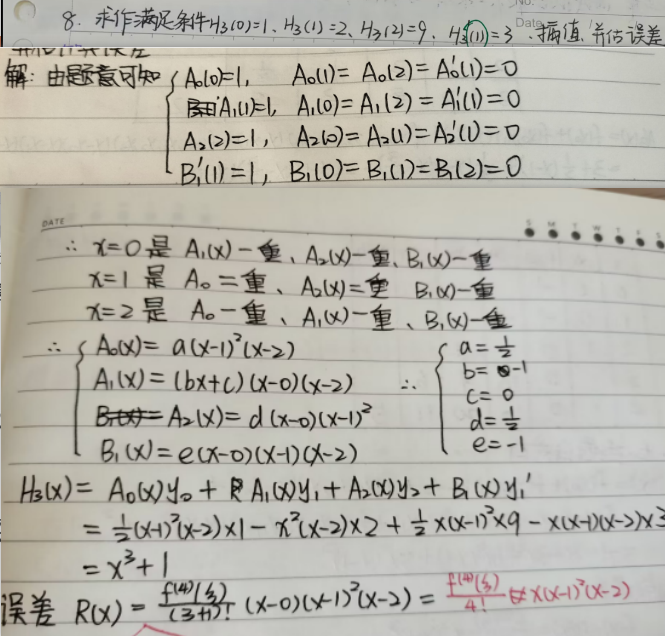 No.
Date
8. 求作满足条件H₃(0)=1、H₃(1)=2、H₃(2)=9、H₃'(1)=3 插值, 并估误差
解: 由题意可知 { A₀(0)=1, A₀(1)=A₀(2)=A₀'(1)=0
A₁(1)=1, A₁(0)=A₁(2)=A₁'(1)=0
A₂(2)=1, A₂(0)=A₂(1)=A₂'(1)=0
B₁'(1)=1, B₁(0)=B₁(1)=B₁(2)=0
DATE
∴ x=0 是 A₁(x)一重、A₂(x)一重、B₁(x)一重
x=1 是 A₀二重、A₂(x)二重 B₁(x)一重
x=2 是 A₀一重、A₁(x)一重、B₁(x)一重
∴ { A₀(x)=a(x-1)²(x-2) ∴ { a=½
A₁(x)=(bx+c)(x-0)(x-2) b=-1
A₂(x)=d(x-0)(x-1)² c=0
B₁(x)=e(x-0)(x-1)(x-2) d=½
e=-1
H₃(x)=A₀(x)y₀+A₁(x)y₁+A₂(x)y₂+B₁(x)y₁'
=½(x-1)²(x-2)×1-x²(x-2)×2+½x(x-1)²×9-x(x-1)(x-2)×3
=x³+1
误差 R(x)=f⁽⁴⁾(ξ)/(3+1)! (x-0)(x-1)²(x-2)=f⁽⁴⁾(ξ)/4! x(x-1)²(x-2)